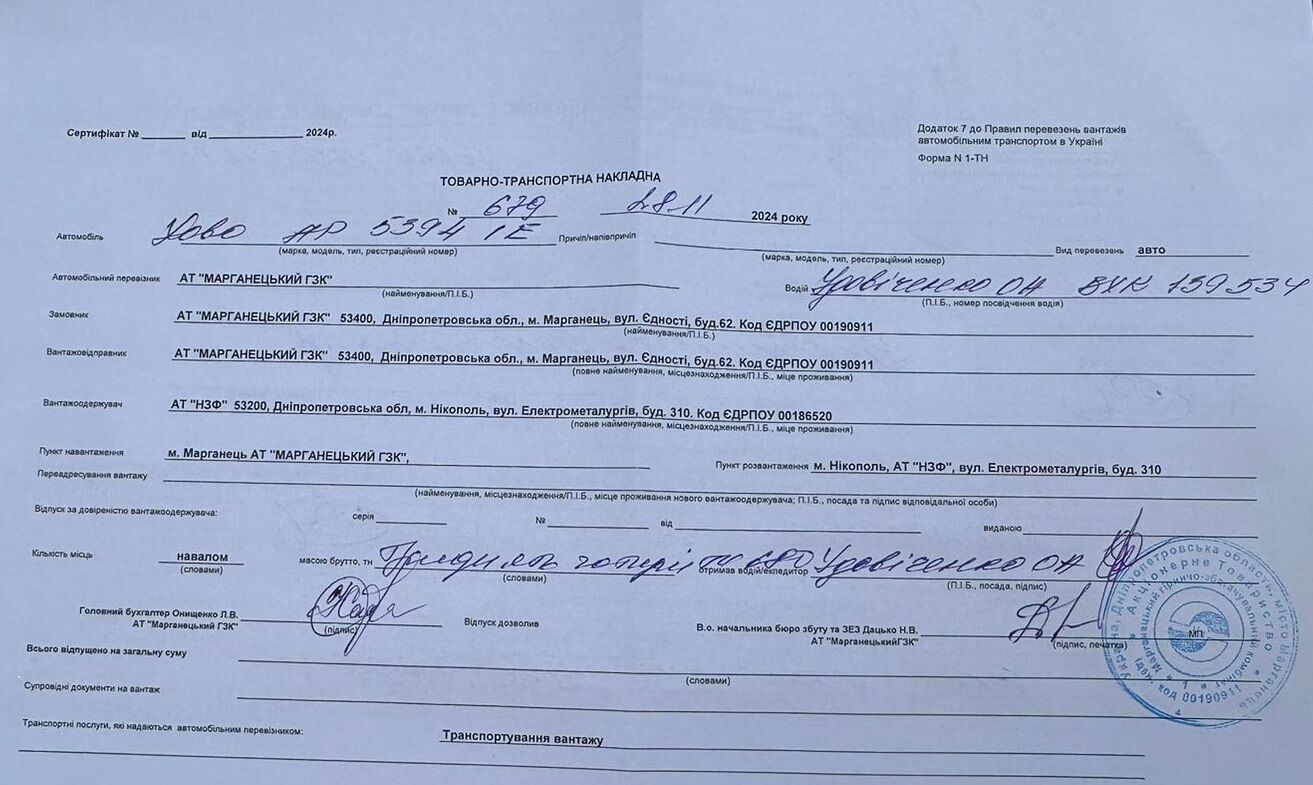 Сертифікат № ______ від ______________ 2024р.
Додаток 7 до Правил перевезень вантажів
автомобільним транспортом в Україні
Форма N 1-ТН
ТОВАРНО-ТРАНСПОРТНА НАКЛАДНА
№ 679 28.11 2024 року
Автомобіль АР 5394 ІЕ Причіп/напівпричіп Вид перевезень авто
(марка, модель, тип, реєстраційний номер) (марка, модель, тип, реєстраційний номер)
Автомобільний перевізник АТ "МАРГАНЕЦЬКИЙ ГЗК" Водій Удовіченко ОА ВХК 139534
(найменування/П.І.Б.) (П.І.Б., номер посвідчення водія)
Замовник АТ "МАРГАНЕЦЬКИЙ ГЗК" 53400, Дніпропетровська обл., м. Марганець, вул. Єдності, буд.62. Код ЄДРПОУ 00190911
(найменування/П.І.Б.)
Вантажовідправник АТ "МАРГАНЕЦЬКИЙ ГЗК" 53400, Дніпропетровська обл., м. Марганець, вул. Єдності, буд.62. Код ЄДРПОУ 00190911
(повне найменування, місцезнаходження/П.І.Б., міце проживання)
Вантажоодержувач АТ "НЗФ" 53200, Дніпропетровська обл, м. Нікополь, вул. Електрометалургів, буд. 310. Код ЄДРПОУ 00186520
(повне найменування, місцезнаходження/П.І.Б., міце проживання)
Пункт навантаження м. Марганець АТ "МАРГАНЕЦЬКИЙ ГЗК", Пункт розвантаження м. Нікополь, АТ "НЗФ", вул. Електрометалургів, буд. 310
Переадресування вантажу
(найменування, місцезнаходження/П.І.Б., місце проживання нового вантажоодержувача; П.І.Б., посада та підпис відповідальної особи)
Відпуск за довіреністю вантажоодержувача: серія __________ № ______________ від виданою
Кількість місць навалом масою брутто, тн чотири отримав водій/експедитор Удовіченко ОА
(словами) (словами) (П.І.Б., посада, підпис)
Головний бухгалтер Онищенко Л.В. Відпуск дозволив В.о. начальника бюро збуту та ЗЕЗ Дацько Н.В.
АТ "Марганецький ГЗК" (підпис) АТ "МарганецькийГЗК" (підпис, печатка)
МП
Україна, Дніпропетровська область, місто Марганець
Акціонерне товариство
Марганецький гірничо-збагачувальний комбінат
код 00190911
Всього відпущено на загальну суму
(словами)
Супровідні документи на вантаж
Транспортні послуги, які надаються автомобільним перевізником: Транспортування вантажу